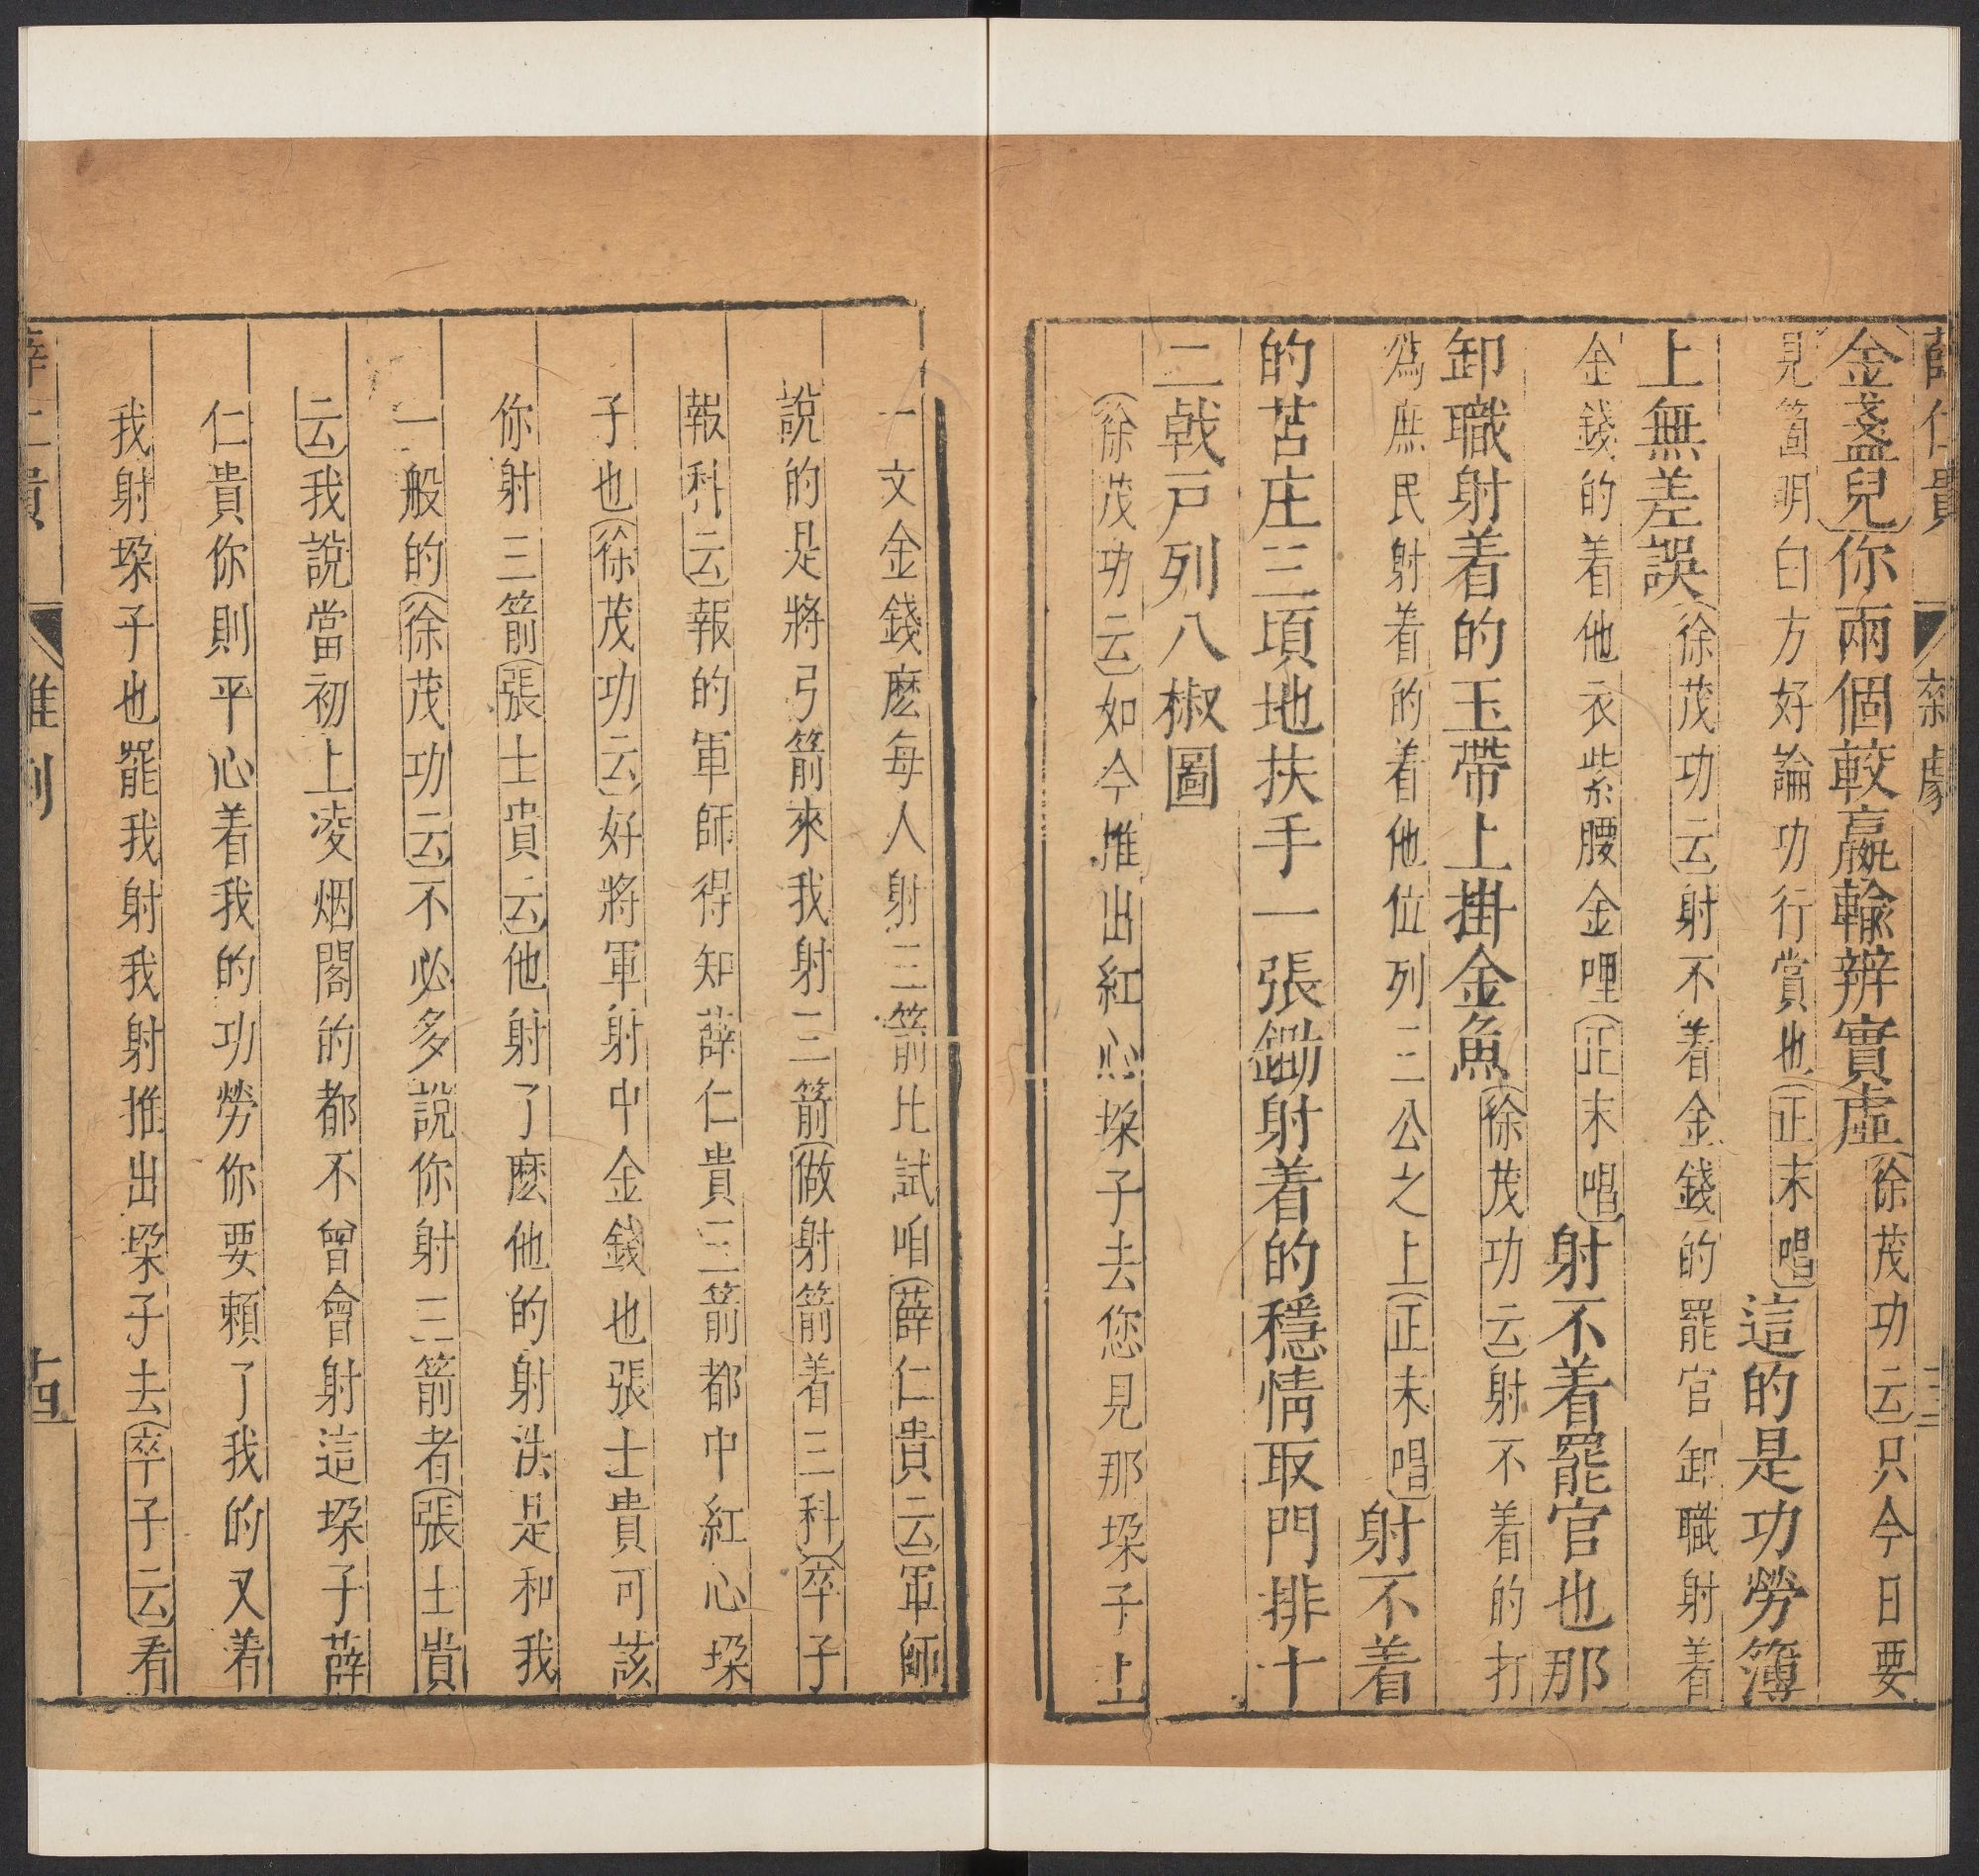 薛仁貴 雜劇
金盞兒你兩個較贏輸辨實虛徐茂功云只今日要
見箇明白方好論功行賞也正末唱這的是功勞簿
上無差誤徐茂功云射不着金錢的罷官卸職射着
金錢的着他衣紫腰金哩正末唱射不着罷官也那
卸職射着的玉帶上掛金魚徐茂功云射不着的打
為庶民射着的着他位列三公之上正末唱射不着
的苫庄三頃地扶手一張鋤射着的穩情取門排十
二戟戶列八椒圖
徐茂功云如今推出紅心垛子去您見那垛子上
一文金錢麽每人射三箭比試咱薛仁貴云軍師
說的是將弓箭來我射三箭做射箭着三科卒子
報科云報的軍師得知薛仁貴三箭都中紅心垛
子也徐茂功云好將軍射中金錢也張士貴可該
你射三箭張士貴云他射了麽他的射法是和我
一般的徐茂功云不必多說你射三箭者張士貴
云我說當初上凌烟閣的都不曾會射這垛子薛
仁貴你則平心着我的功勞你要賴了我的又着
我射垛子也罷我射我射推出垛子去卒子云看
薛仁貴